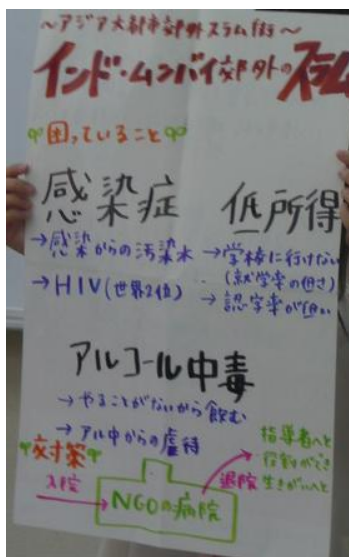 ～アジア大都市郊外スラム街～
インド・ムンバイ郊外のスラム
困っていること
感染症
→感染からの汚染水
→HIV(世界2位)
低所得
→学校に行けない
(就学率の低さ)
→認字率が低い
アルコール中毒
→やることがないから飲む
→アル中からの虐待
対策
入院
NGOの病院
退院
指導者へと
役割ができ
生きがいへと